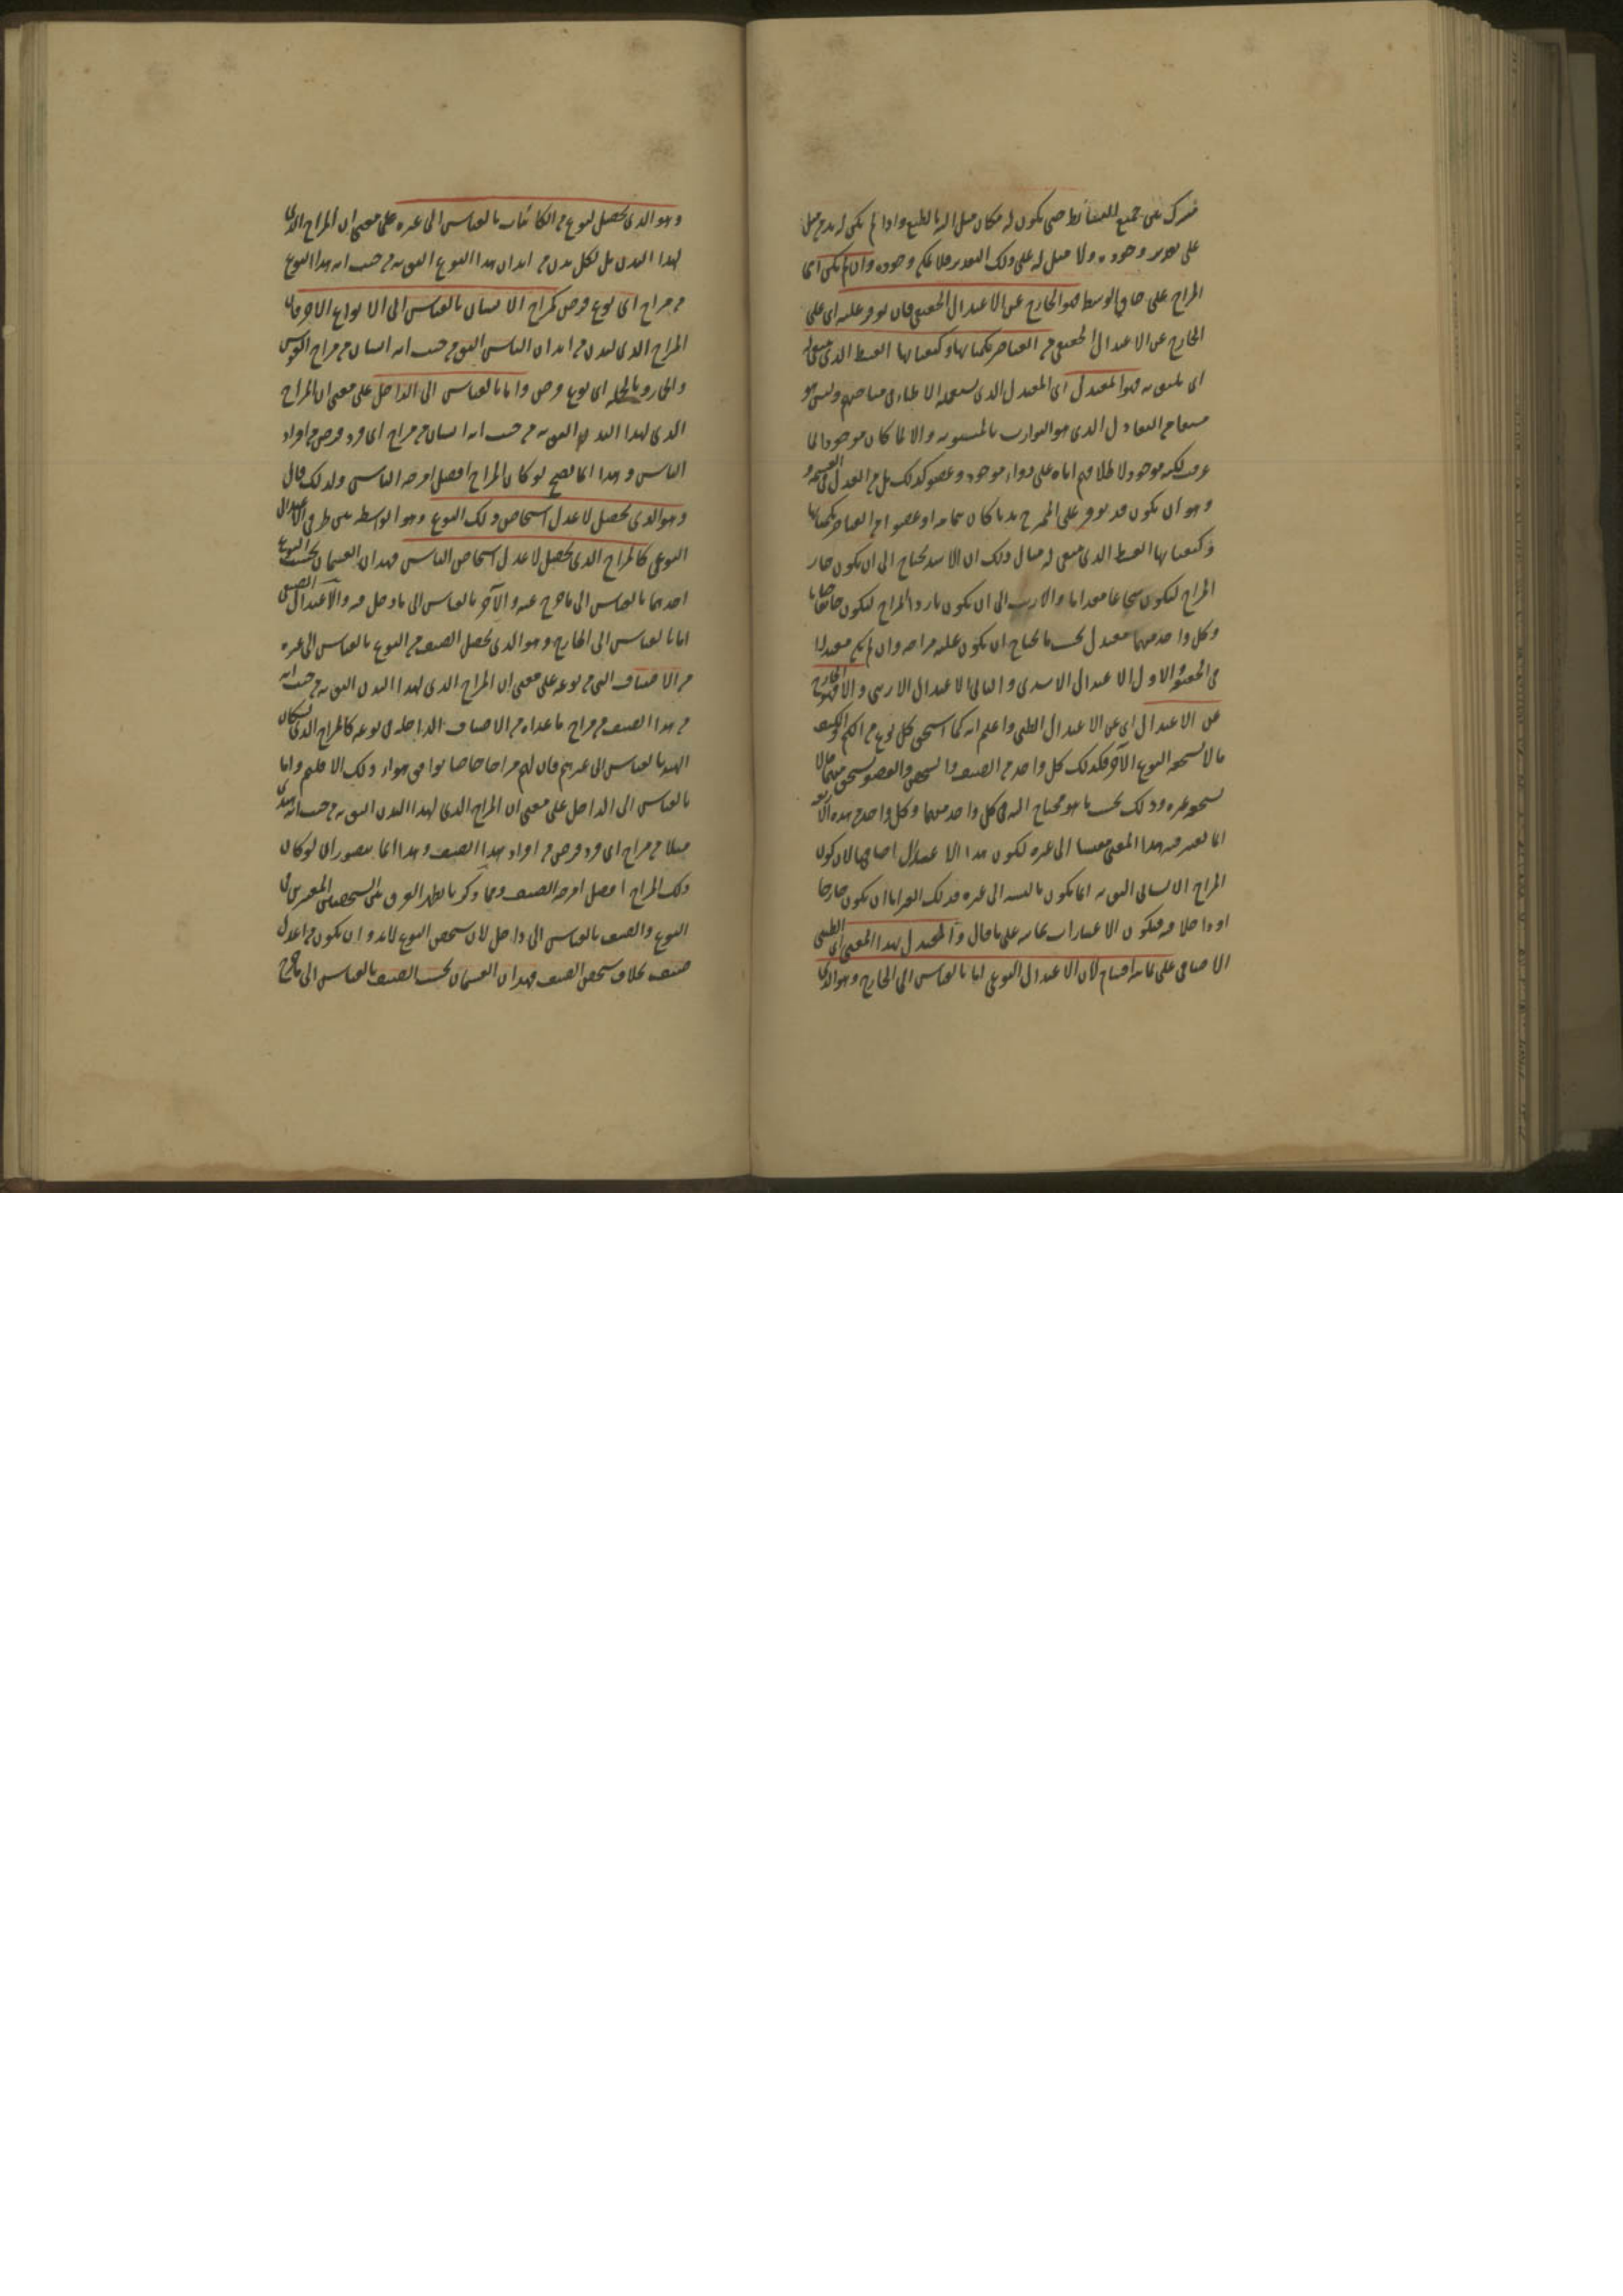 مشترك بين جميع البسائط حتى يكون له مكان ميل اليه بالطبع واذا لم يكن له مدح ميل
على تقدير وجوده ولا ميل له على ذلك التقدير فلا يمكن وجوده وان لم يكن اى
المزاج على حاق الوسط فهو الخارج عن الاعتدال الحقيقى فان توفر عليه اى على
الخارج عن الاعتدال الحقيقى من العناصر بكمياتها وكيفياتها القسط الذى ينبغى له
اى يليق به فهو المعتدل اى المعتدل الذى يستعمله الاطباء فى مباحثهم وليس هو
مشتقا من التعادل الذى هو التوازن بالسوية والا لما كان موجودا لما
عرفت لكنه موجود لاطلاقهم اياه على دواء موجود وعضو كذلك بل من العدل فى القسمة
وهو ان يكون قد توفر على الممتزج بدنا كان بتمامه او عضوا من العناصر بكمياتها
وكيفياتها القسط الذى ينبغى له مثال ذلك ان الاسد يحتاج الى ان يكون حار
المزاج ليكون شجاعا مقداما والارنب الى ان يكون بارد المزاج ليكون خائفا
وكل واحد منهما معتدل بحسب ما يحتاج ان يكون عليه مزاجه وان لم يكن معتدلا
فى الحقيقة والاول الاعتدال الاسدى والثانى الاعتدال الارنبى والا فهو الخارج
عن الاعتدال اى عن الاعتدال الطبى واعلم انه كما استحق كل نوع من الكم والكيف
ما لا يستحقه النوع الآخر فكذلك كل واحد من الصنف والشخص والعضو يستحق منهما ما لا
يستحق غيره وذلك بحسب ما هو محتاج اليه فى كل واحد منهما وكل واحد من هذه الاربعة
انما يعتبر فيه هذا المعنى مقيسا الى غيره ليكون هذا الاعتدال اضافيا لان كون
المزاج الانسانى اليق به انما يكون بالنسبة الى غيره فذلك الغير اما ان يكون خارجا
او داخلا فيه فيكون الاعتبارات ثمانية على ما قال والمعتدل بهذا المعنى اى الطبى
الاضافى على ثمانية اقسام لان الاعتدال النوعى اما بالقياس الى الخارج وهو الذى
وهو الذى يحصل لنوع من الكائنات بالقياس الى غيره على معنى ان المزاج الذى
لهذا البدن بل لكل بدن من ابدان هذا النوع اليق به من حيث انه هذا النوع
من مزاج اى نوع فرض كمزاج الانسان بالقياس الى الانواع الاخر فان
المزاج الذى لبدن من ابدان الناس اليق من حيث انه انسان من مزاج الفرس
والحمار وبالجملة اى نوع فرض واما بالقياس الى الداخل على معنى ان المزاج
الذى لهذا البدن اليق به من حيث انه انسان من مزاج اى فرد فرض من افراد
الناس وهذا انما يصح لو كان المزاج افضل امزجة الناس ولذلك قال
وهو الذى يحصل لاعدل اشخاص ذلك النوع وهو الواسطة بين طرفى الاعتدال
النوعى كالمزاج الذى يحصل لاعدل اشخاص الناس فهذان القسمان بحسب النوع
احدهما بالقياس الى ما خرج عنه والآخر بالقياس الى ما دخل فيه والاعتدال الصنفى
اما بالقياس الى الخارج وهو الذى يحصل لصنف من النوع بالقياس الى غيره
من الاصناف التى من نوعه على معنى ان المزاج الذى لهذا البدن اليق به من حيث انه
من هذا الصنف من مزاج ما عداه من الاصناف الداخلة فى نوعه كالمزاج الذى لسكان
الهند بالقياس الى غيرهم فان لهم مزاجا خاصا يوافق هواء ذلك الاقليم واما
بالقياس الى الداخل على معنى ان المزاج الذى لهذا البدن اليق به من حيث انه هندى
مثلا من مزاج اى فرد فرض من افراد هذا الصنف وهذا انما يتصور ان لو كان
ذلك المزاج افضل امزجة الصنف ومما ذكرنا يظهر الفرق بين الشخصين المعتبرين فى
النوع والصنف بالقياس الى داخل لان شخص النوع لابد وان يكون من اعدل
صنف بخلاف شخص الصنف فهذان القسمان بحسب الصنف بالقياس الى ما خرج